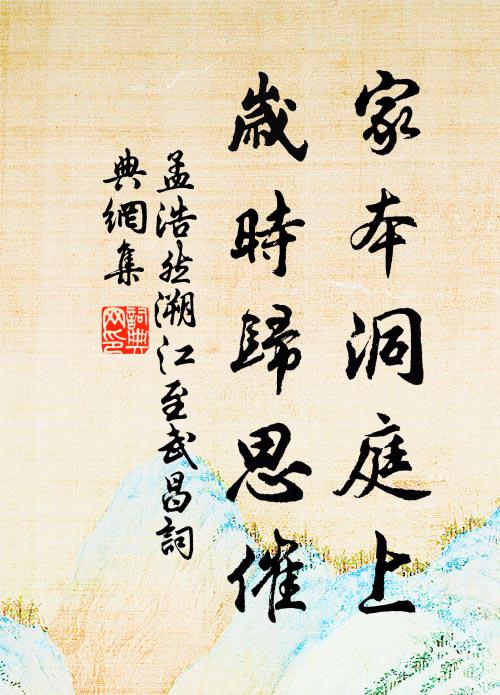 家本洞庭上
歲時歸思催
孟浩然溯江至武昌詞
典網集
詞典
网印